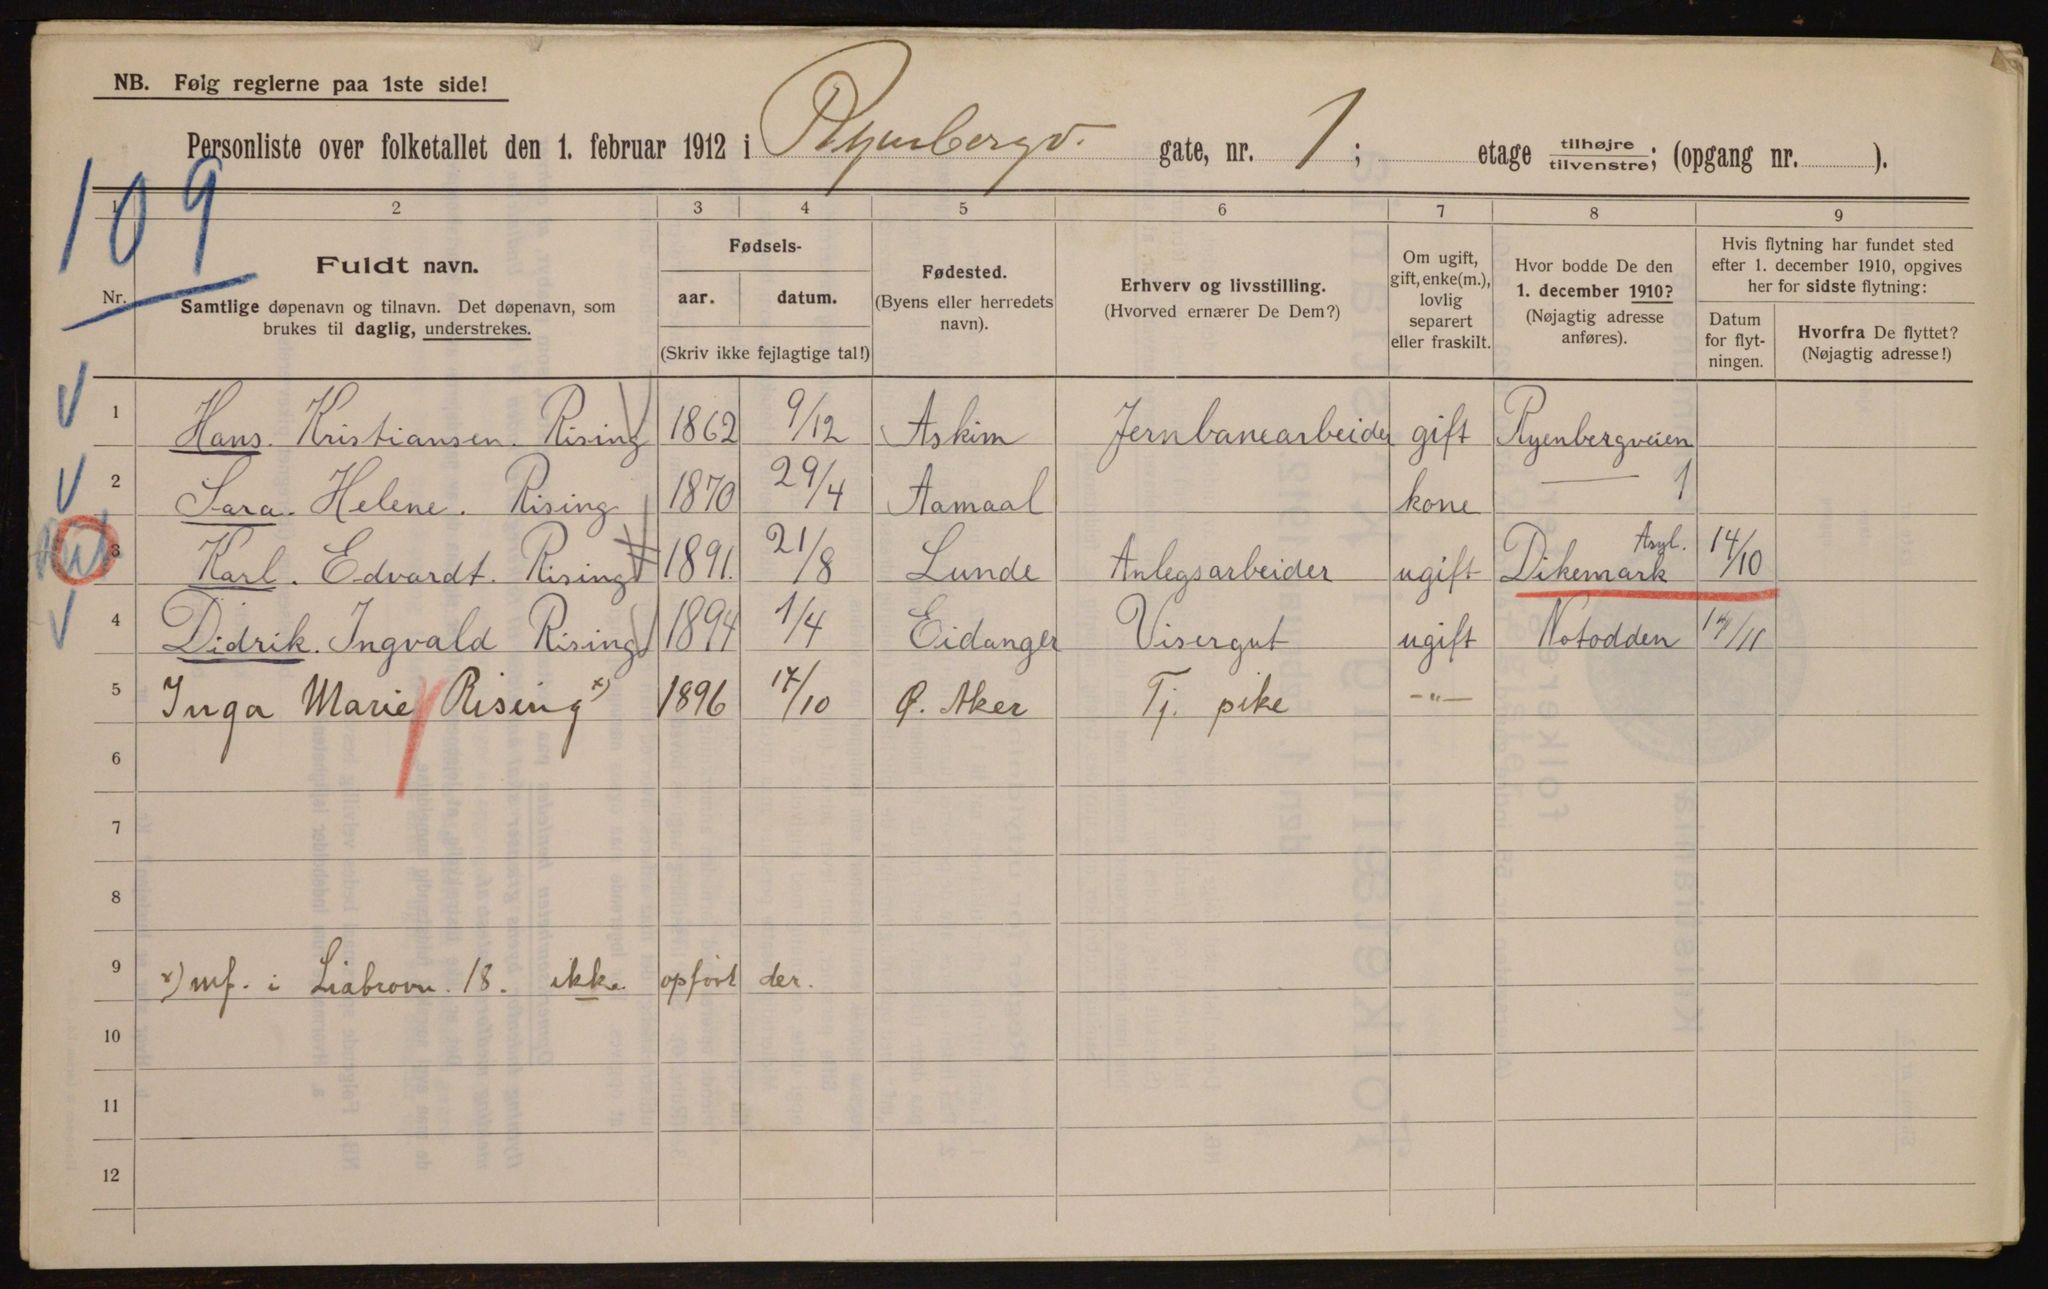 NB. Følg reglerne paa 1ste side!
Personliste over folketallet den 1. februar 1912 i Ryenbergv. gate, nr. 1 ; etage tilhøjre/tilvenstre; (opgang nr. ).
109
1 2 3 4 5 6 7 8 9
Nr.
Fuldt navn.
Samtlige døpenavn og tilnavn. Det døpenavn, som
brukes til daglig, understrekes.
Fødsels-
aar. datum.
(Skriv ikke fejlagtige tal!)
Fødested.
(Byens eller herredets
navn).
Erhverv og livsstilling.
(Hvorved ernærer De Dem?)
Om ugift,
gift, enke(m.),
lovlig
separert
eller fraskilt.
Hvor bodde De den
1. december 1910?
(Nøjagtig adresse
anføres).
Hvis flytning har fundet sted
efter 1. december 1910, opgives
her for sidste flytning:
Datum
for flyt-
ningen.
Hvorfra De flyttet?
(Nøjagtig adresse!)
1 Hans. Kristiansen. Rising 1862 9/12 Askim Jernbanearbeider gift Ryenbergveien
2 Sara. Helene. Rising 1870 29/4 Aamaal kone — 1
3 Karl. Edvardt. Rising 1891. 21/8 Lunde Anlegsarbeider ugift Dikemark Asyl. 14/10
4 Didrik. Ingvald Rising 1894 1/4 Eidanger Visergut ugift Notodden 14/11
5 Inga Marie Rising x) 1896 17/10 Ø. Aker Tj. pike -"-
6
7
8
9 x) mf. i Liabrovn. 18. ikke opført der.
10
11
12